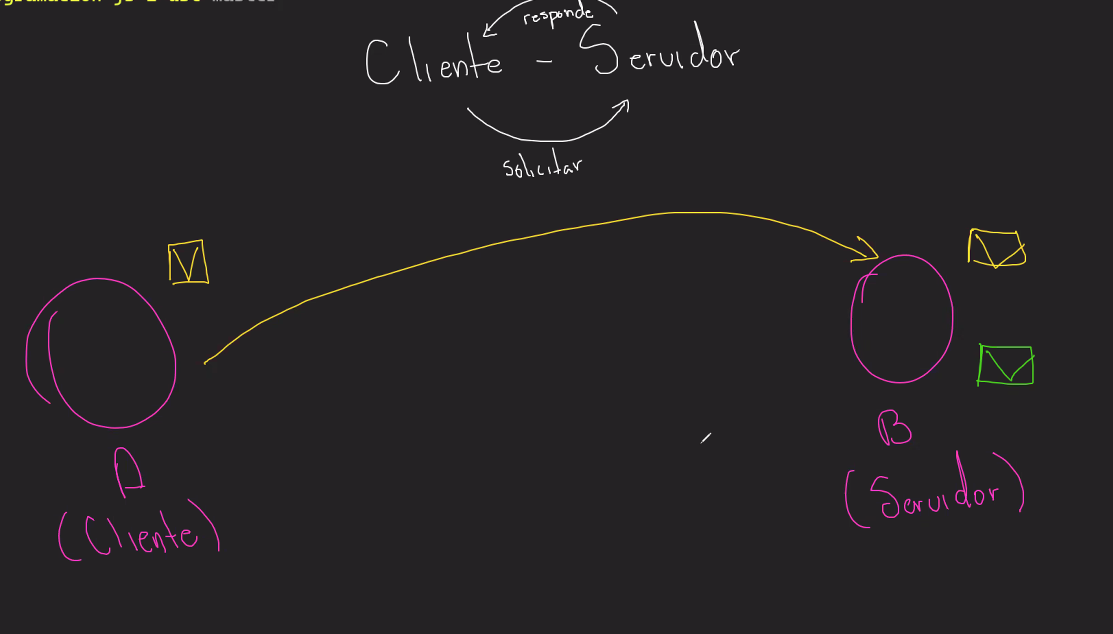 responde
Cliente - Servidor
solicitar
A
B
(Cliente)
(Servidor)